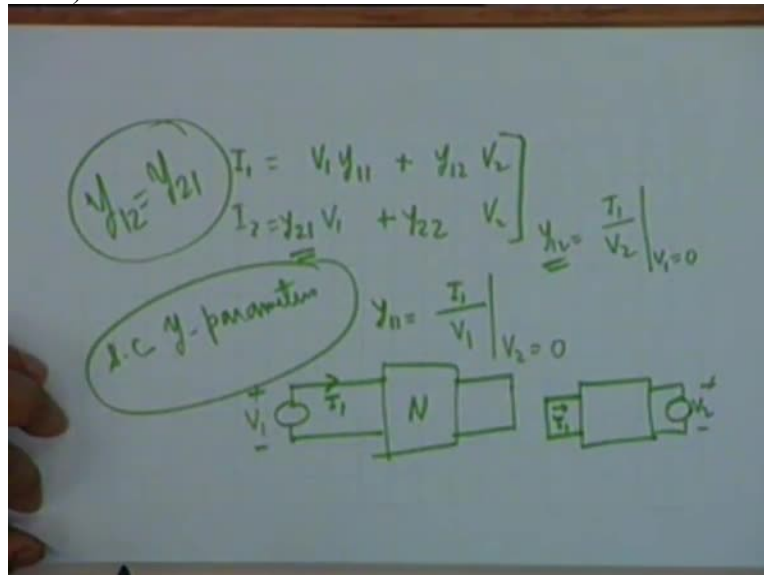 y12 = y21
I1 = V1 y11 + y12 V2
I2 = y21 V1 + y22 V2
y12 = I1 / V2 | V1 = 0
s.c y-parameters
y11 = I1 / V1 | V2 = 0
+ V1 -
I1
N
I1
+ V2 -